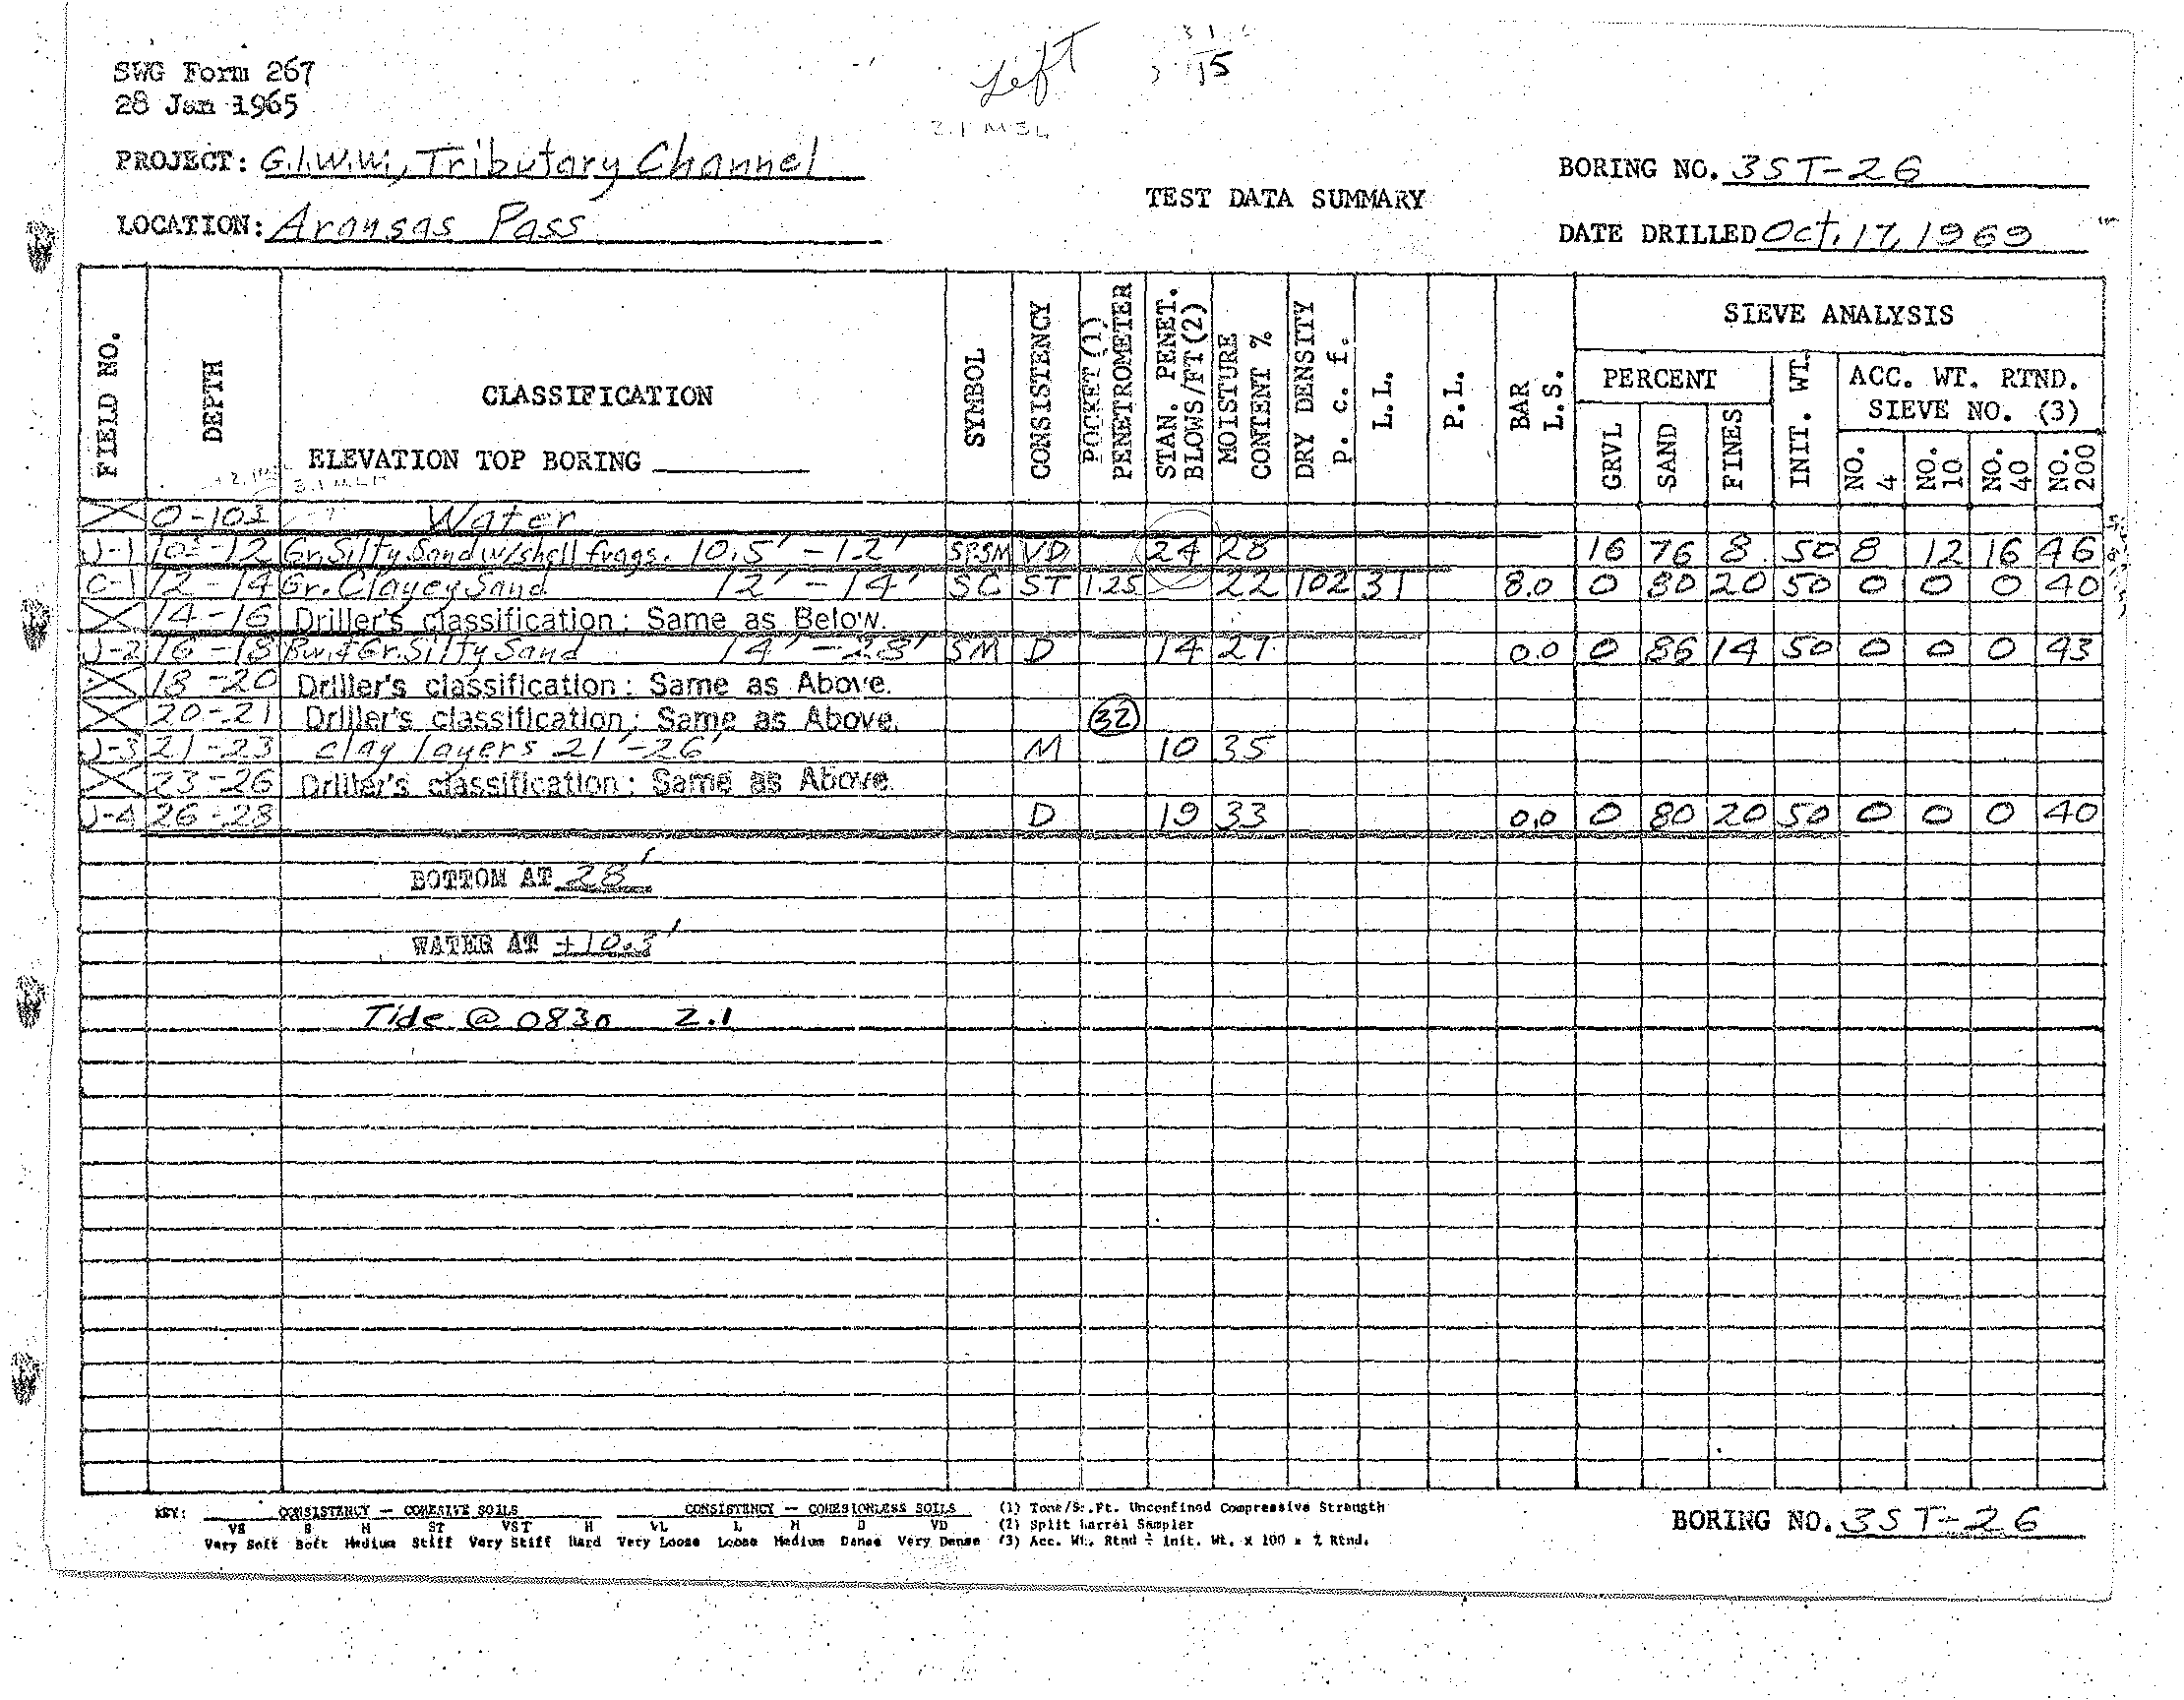 Left
15
SWG Form 267
28 Jan 1965
2.1 MSL
PROJECT: G.I.W.W., Tributary Channel
BORING NO. 3ST-26
TEST DATA SUMMARY
LOCATION: Aransas Pass
DATE DRILLED Oct. 17, 1969
FIELD NO.
DEPTH
CLASSIFICATION
ELEVATION TOP BORING
SYMBOL
CONSISTENCY
POCKET (1) PENETROMETER
STAN. PENET. BLOWS/FT (2)
MOISTURE CONTENT %
DRY DENSITY P. c. f.
L.L.
P.L.
BAR L.S.
SIEVE ANALYSIS
PERCENT
GRVL
SAND
FINES
INIT. WT.
ACC. WT. RTND.
SIEVE NO. (3)
NO. 4
NO. 10
NO. 40
NO. 200
Water
J-1 Gr. Silty Sand w/shell frags. 10.5' - 12' SPSM VD 24 28 16 76 8 50 8 12 16 46
C-1 12 - 14 Gr. Clayey Sand 12' - 14' SC ST 1.25 22 102 31 8.0 0 80 20 50 0 0 0 40
14-16 Driller's classification: Same as Below.
J-2 16 - 18 Bw. & Gr. Silty Sand 14' - 28' SM D 14 27 0.0 0 86 14 50 0 0 0 43
18 - 20 Driller's classification: Same as Above.
20 - 21 Driller's classification: Same as Above. 32
J-3 21 - 23 clay layers 21' - 26' M 10 35
23 - 26 Driller's classification: Same as Above.
J-4 26 - 28 D 19 33 0.0 0 80 20 50 0 0 0 40
BOTTOM AT 28'
WATER AT +10.3'
Tide @ 0830 2.1
KEY: CONSISTENCY — COHESIVE SOILS CONSISTENCY — COHESIONLESS SOILS (1) Tons/Sq.Ft. Unconfined Compressive Strength
VS S M ST VST H VL L M D VD (2) Split Barrel Sampler
Very Soft Soft Medium Stiff Very Stiff Hard Very Loose Loose Medium Dense Very Dense (3) Acc. Wt. Rtnd ÷ Init. Wt. x 100 = % Rtnd.
BORING NO. 3ST-26